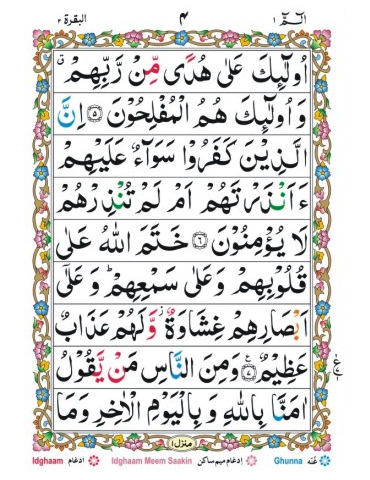 البقرة ٢ ٤ الٓمّٓ ١
اُولٰٓئِكَ عَلٰی هُدًی مِّنْ رَّبِّهِمْ ۗ
وَ اُولٰٓئِكَ هُمُ الْمُفْلِحُوْنَ ۝۵ اِنَّ
الَّذِیْنَ كَفَرُوْا سَوَآءٌ عَلَیْهِمْ
ءَاَنْذَرْتَهُمْ اَمْ لَمْ تُنْذِرْهُمْ
لَا یُؤْمِنُوْنَ ۝۶ خَتَمَ اللّٰهُ عَلٰی
قُلُوْبِهِمْ وَعَلٰی سَمْعِهِمْ ؕ وَ عَلٰۤی
اَبْصَارِهِمْ غِشَاوَةٌ ؗ وَّلَهُمْ عَذَابٌ
عَظِیْمٌ ۝۷ وَمِنَ النَّاسِ مَنْ یَّقُوْلُ
اٰمَنَّا بِاللّٰهِ وَ بِالْیَوْمِ الْاٰخِرِ وَمَا
منزل ١
Idghaam ادغام Idghaam Meem Saakin ادغام میم ساکن Ghunna غُنّه